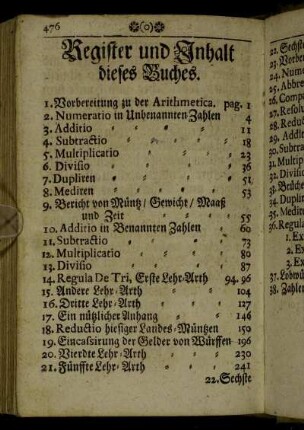 476
Register und Inhalt
dieses Buches.
1. Vorbereitung zu der Arithmetica. pag. 1
2. Numeratio in Unbenannten Zahlen 4
3. Additio 11
4. Subtractio 18
5. Multiplicatio 23
6. Divisio 36
7. Dupliren 51
8. Mediren 53
9. Bericht von Müntz/ Gewicht/ Maaß
und Zeit 55
10. Additio in Benannten Zahlen 60
11. Subtractio 73
12. Multiplicatio 80
13. Divisio 87
14. Regula De Tri, Erste Lehr-Arth 94. 96
15. Andere Lehr-Arth 104
16. Dritte Lehr-Arth 127
17. Ein nützlicher Anhang 146
18. Reductio hiesiger Landes-Müntzen 150
19. Eincassirung der Gelder von Würffen 196
20. Vierdte Lehr-Arth 230
21. Fünffte Lehr-Arth 241
22. Sechste
22. Sechste
23.
24. Nume
25. Abbre
26. Comp
27. Resolv
28. Redu
29. Addit
30. Subtr
31. Multip
32. Divisi
33.
34. Duplir
35. Medir
36. Regul
1. Ex
2. Ex
3. Ex
37.
38.